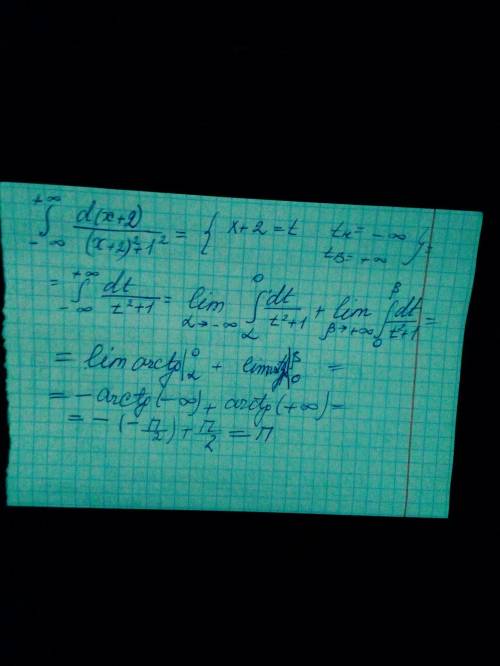 +∞∫-∞ d(x+2)/((x+2)²+1²) = { x+2=t tн=-∞ tв=+∞ } =
= +∞∫-∞ dt/(t²+1) = lim α→-∞ 0∫α dt/(t²+1) + lim β→+∞ β∫0 dt/(t²+1) =
= lim arctg |0 α + lim |β 0 =
= -arctg(-∞) + arctg(+∞) =
= -(-π/2) + π/2 = π